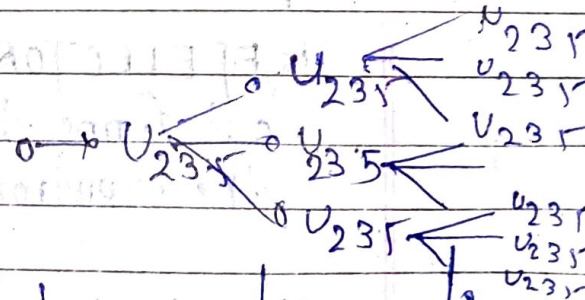 U 235
U 235
U 235
U 235
U 235
U 235
U 235
U 235
U 235
U 235